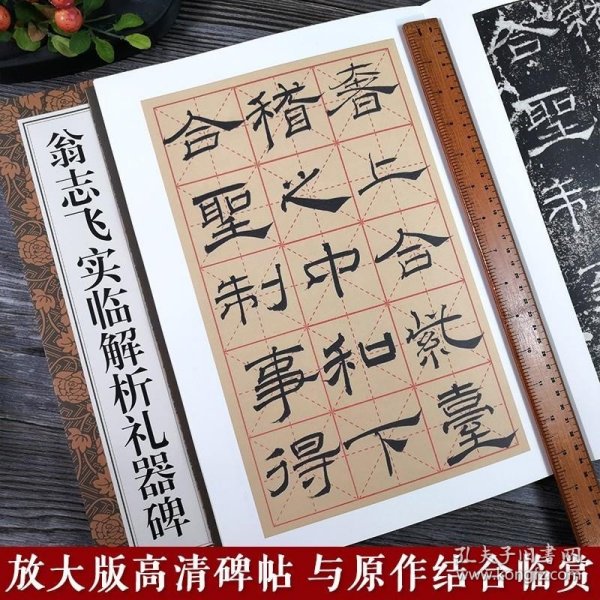 翁志飞 实临解析礼器碑
奢上合紫臺
稽之中和下
合聖制事得
合聖制
放大版高清碑帖 与原作结合临赏
孔夫子旧书网
www.kongfz.com